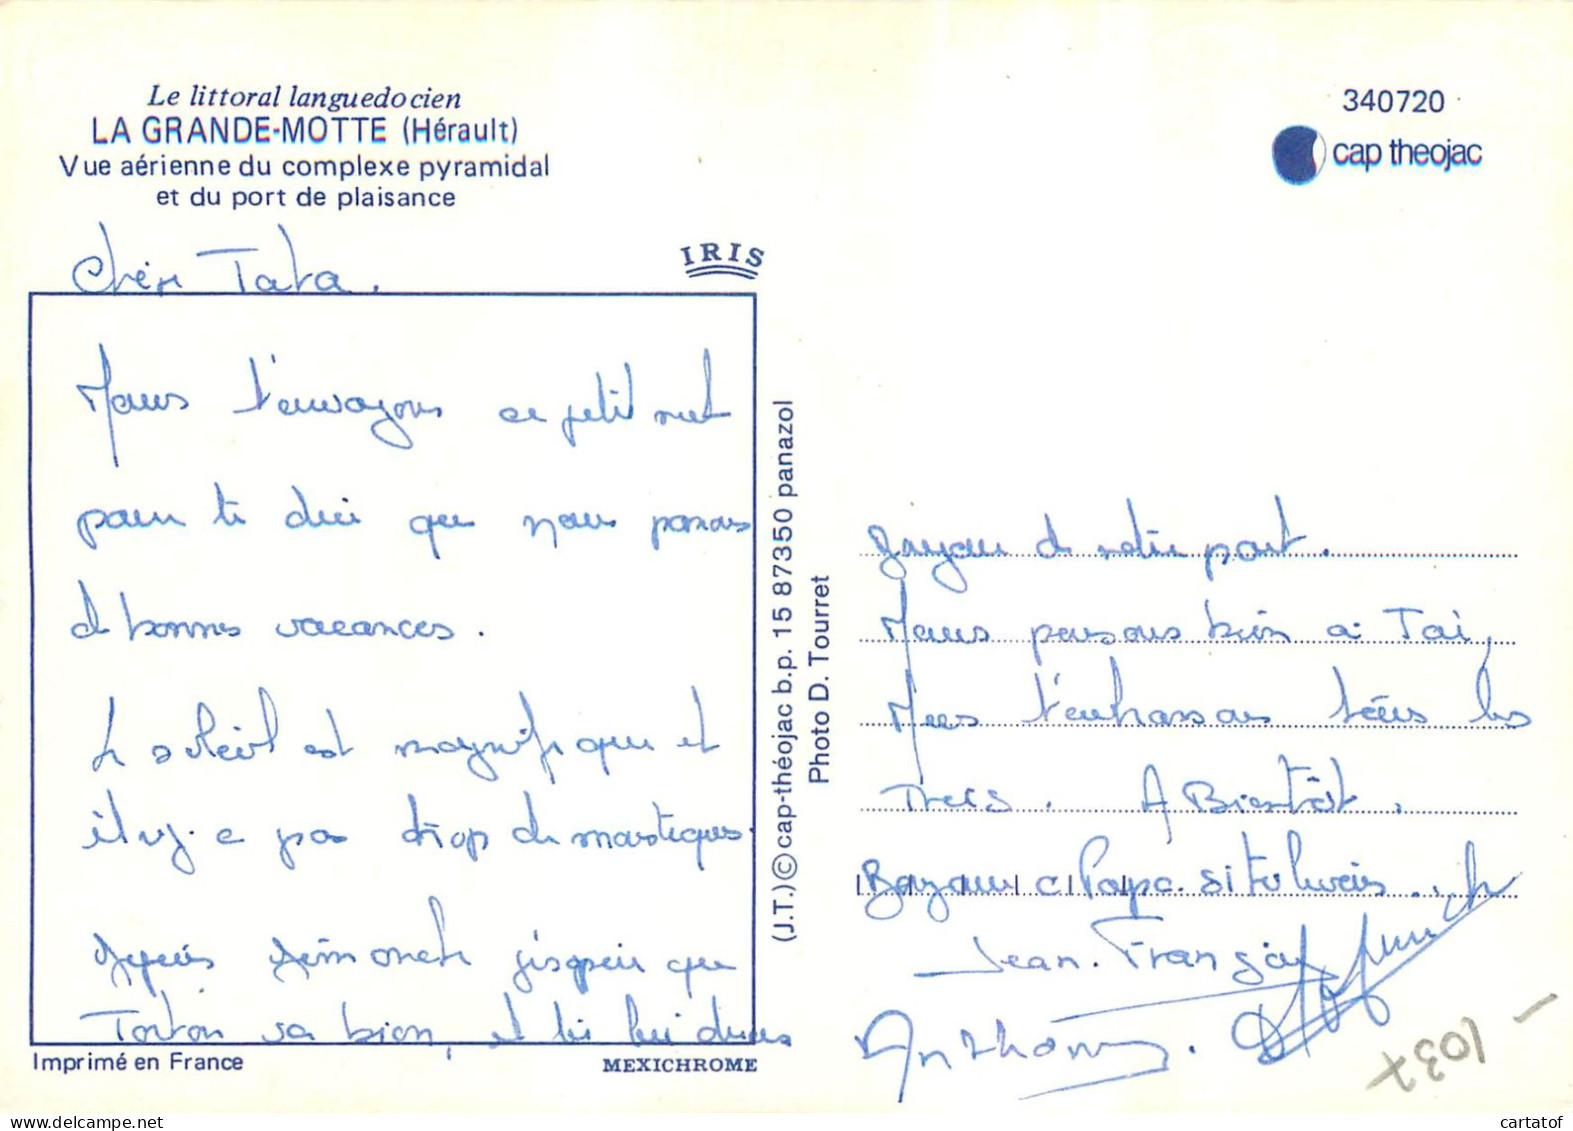 Le littoral languedocien
LA GRANDE-MOTTE (Hérault)
Vue aérienne du complexe pyramidal
et du port de plaisance
340720
cap theojac
IRIS
Chère Tata.
Nous t'envoyons ce petit mot
pour te dire que nous passons
de bonnes vacances.
Le soleil est magnifique et
il y a pas trop de moustiques.
Depuis dimanche j'espère que
Tonton va bien, et tu lui diras
Imprimé en France
MEXICHROME
(J.T.) © cap-théojac b.p. 15 87350 panazol
Photo D. Tourret
de notre part.
Nous pensons bien à Toi,
Nous t'embrassons tous les
Trois. A Bientôt.
Papa si tu le vois.
Jean-François
Anthony.
1037
cartatof